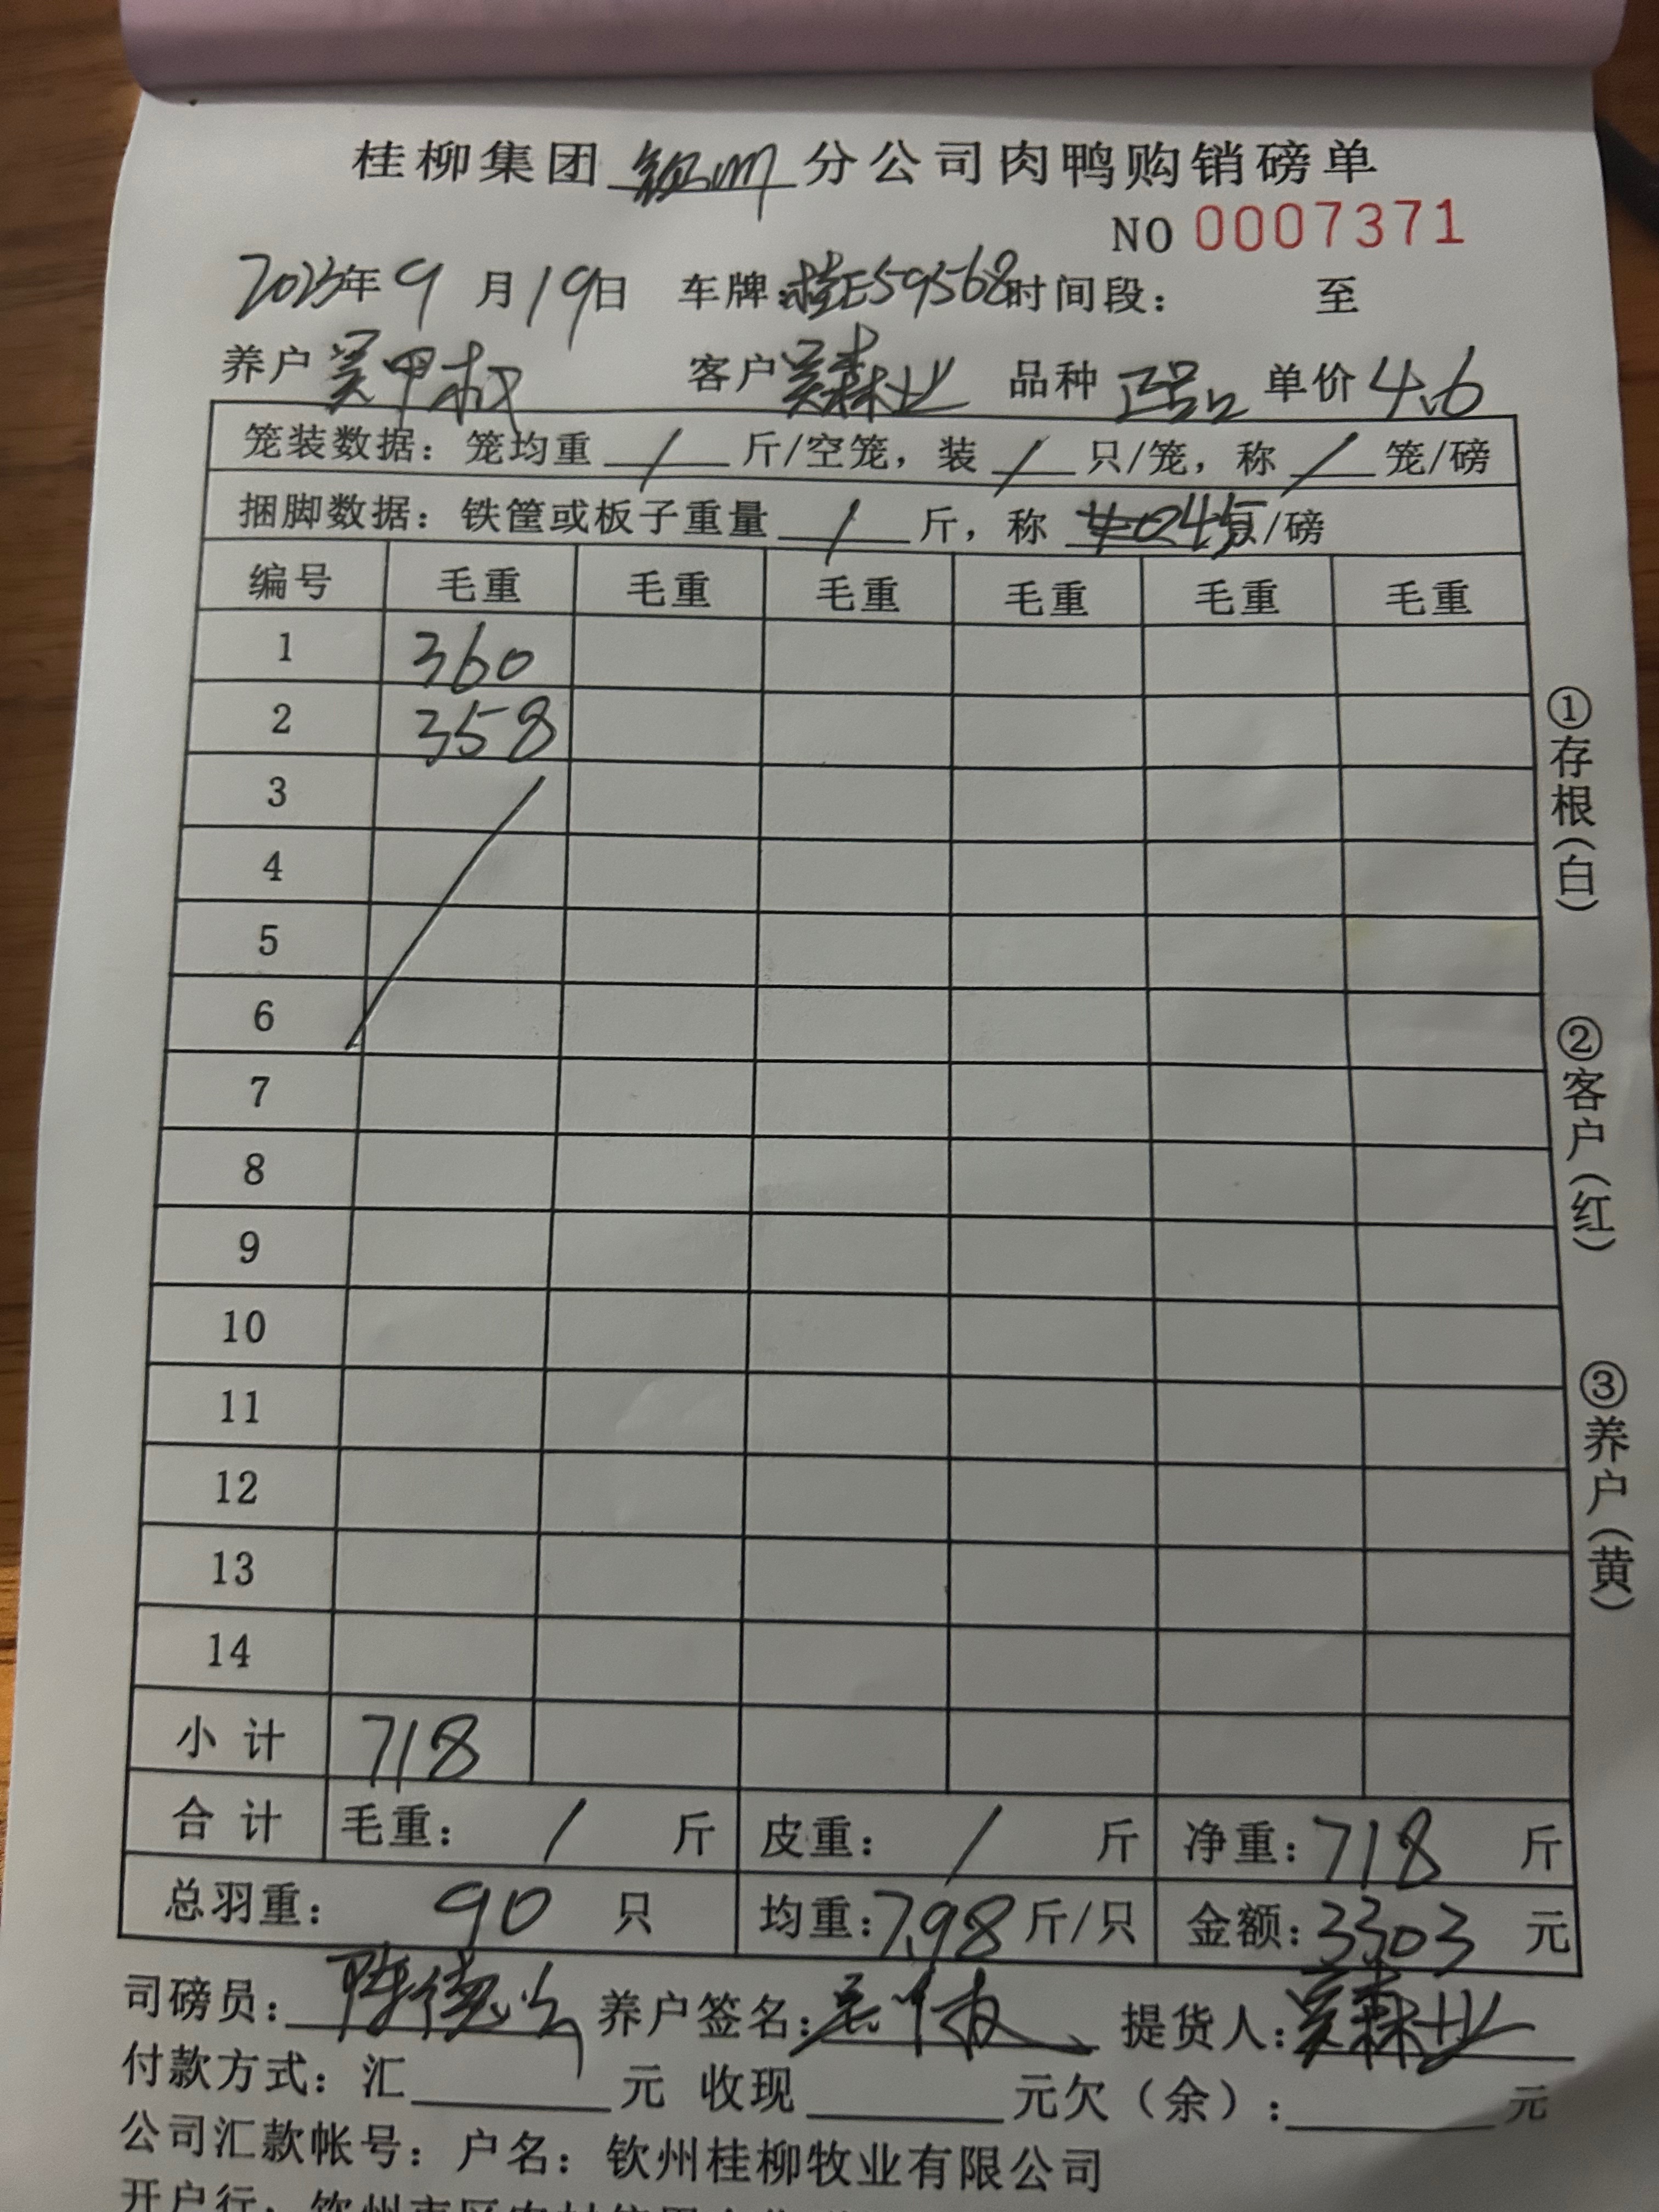 桂柳集团 钦州 分公司肉鸭购销磅单
NO 0007371
2023年 9 月 19日 车牌:桂E59568 时间段: 至
养户 吴甲权 客户 吴森业 品种 正品 单价 4.6
笼装数据: 笼均重 / 斤/空笼, 装 / 只/笼, 称 / 笼/磅
捆脚数据: 铁筐或板子重量 / 斤, 称 /磅
编号 毛重 毛重 毛重 毛重 毛重 毛重
1 360
2 358
3
4
5
6
7
8
9
10
11
12
13
14
小计 718
合计 毛重: / 斤 皮重: / 斤 净重: 718 斤
总羽重: 90 只 均重: 7.98 斤/只 金额: 3303 元
司磅员: 养户签名: 提货人: 吴森业
付款方式: 汇 元 收现 元欠(余): 元
公司汇款帐号: 户名: 钦州桂柳牧业有限公司
开户行: 钦州市区农村信用合作
①存根(白)
②客户(红)
③养户(黄)